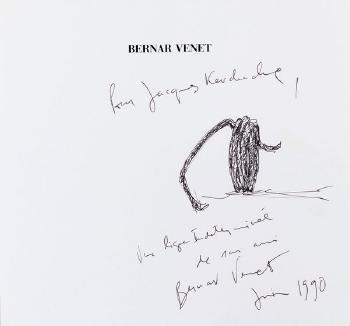 BERNAR VENET
Pour Jacques Kerchache,
Une ligne Indéterminée
de son ami
Bernar Venet
Juin 1990